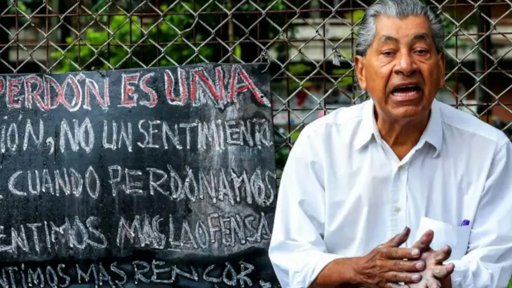 PERDÓN ES UNA
IÓN, NO UN SENTIMIENTO
CUANDO PERDONAMOS
ENTIMOS MAS LA OFENSA
NTIMOS MAS RENCOR.